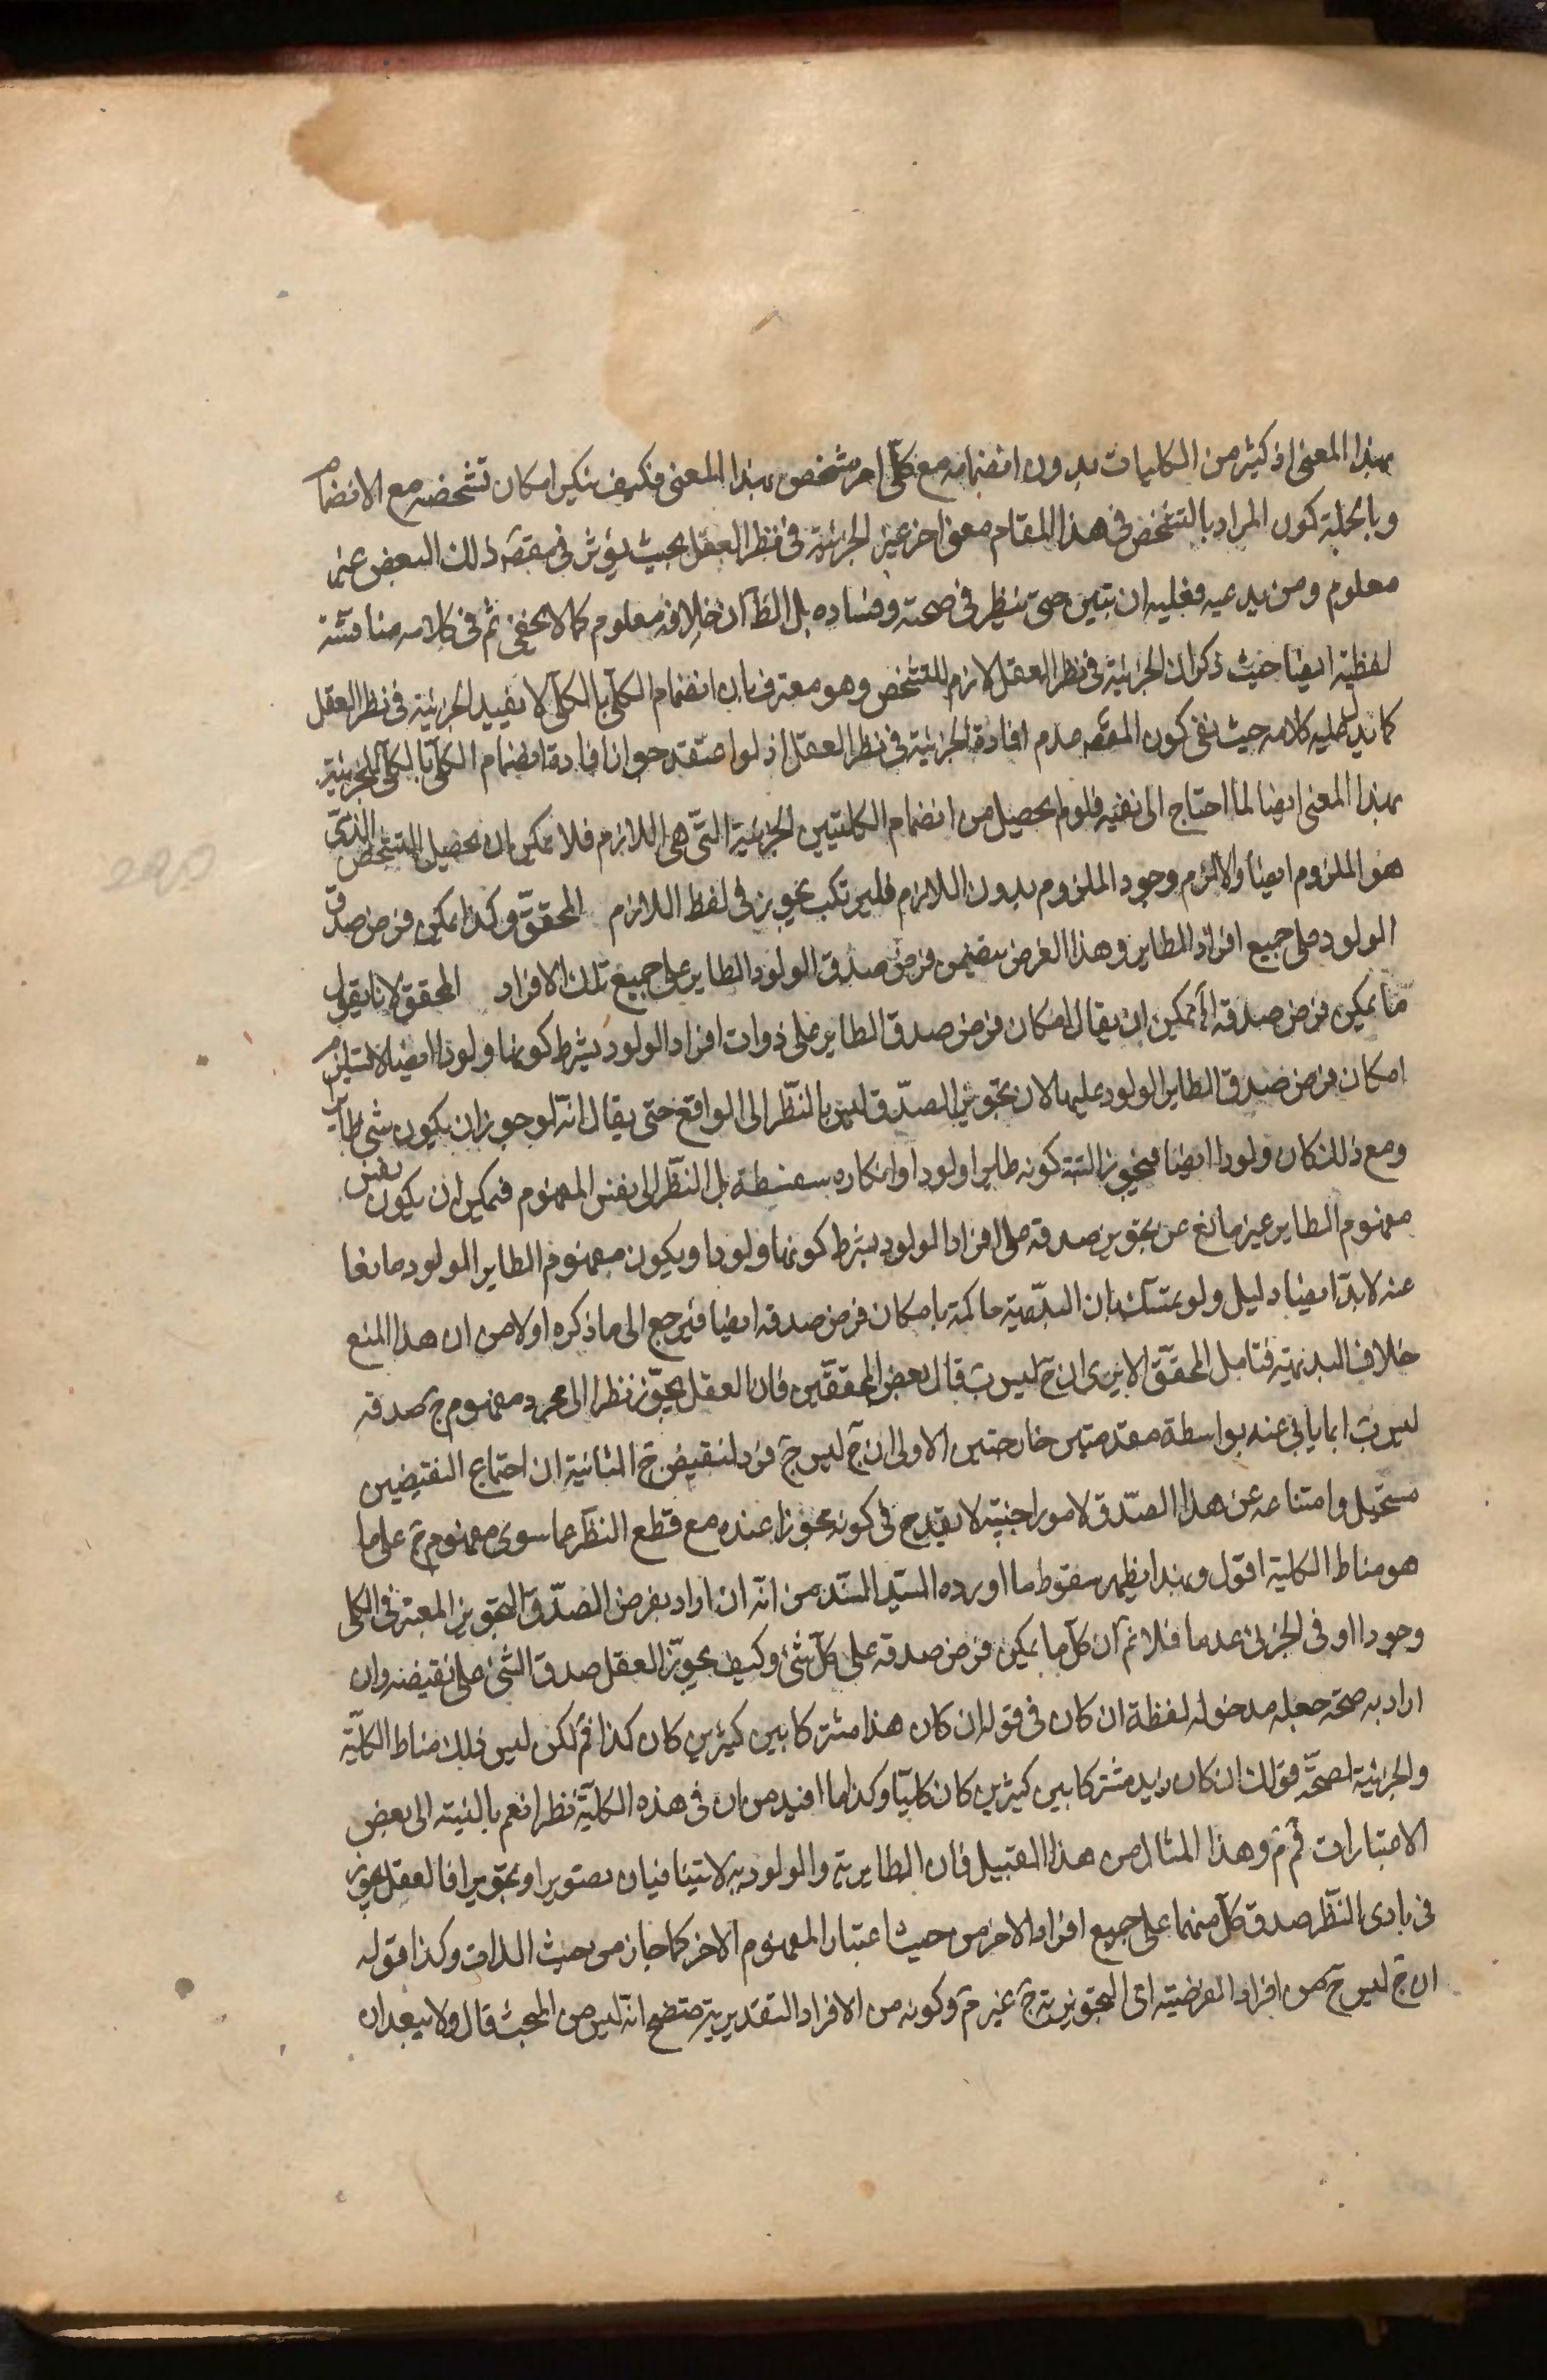 بهذا المعنى اذ كثير من الكليات بدون انضمامه مع كلى اخر مشخص بهذا المعنى فكيف ينكر امكان تشخصه مع الانضمام
وبالجملة كون المراد بالتشخص فى هذا المقام معنى اخر غير الجزئية فى نظر العقل بحيث يؤثر فى مقصد ذلك البعض غير
معلوم ومن يدعيه فعليه ان يتبين حتى ينظر فى صحته وفساده بل الظ ان خلافه معلوم كما لا يخفى ثم فى كلامه مناقشة
لفظية ايضا حيث ذكر ان الجزئية فى نظر العقل لازم للتشخص وهو معترف بان انضمام الكلى بالكلى لا يفيد الجزئية فى نظر العقل
كما يدل عليه كلامه حيث نفى كون المقصد عدم افادة الجزئية فى نظر العقل اذ لو اعتقد جواز افادة انضمام الكلى بالكلى الجزئية
بهذا المعنى ايضا لما احتاج الى نفيه فلو لم يحصل من انضمام الكليتين الجزئية التى هى اللازم فلا يمكن ان يحصل التشخص الذى
هو الملزوم ايضا والا لزم وجود الملزوم بدون اللازم فليرتكب تجويز فى لفظ اللازم المحقق وكذا يمكن فرض صدق
الولود على جميع افراد الطاير وهذا الفرض يتضمن فرض صدق الولود الطاير على جميع تلك الافراد المحقق لانا نقول
ما يمكن فرض صدقه الخ يمكن ان يقال امكان فرض صدق الطاير على ذوات افراد الولود بشرط كونها ولودا ايضا لا يستلزم
امكان فرض صدق الطاير الولود عليها لان تجويز الصدق ليس بالنظر الى الواقع حتى يقال انه لو جوز ان يكون شئ طايرا
ومع ذلك كان ولودا ايضا فيجوز البتة كونه طايرا ولودا وانكاره سفسطة بل النظر الى نفس المفهوم فيمكن ان يكون نفس
مفهوم الطاير غير مانع عن تجويز صدقه على افراد الولود بشرط كونها ولودا ويكون مفهوم الطاير الولود مانعا
عنه لابد ايضا دليل ولو تمسك بان البديهية حاكمة بامكان فرض صدقه ايضا فيرجع الى ما ذكره اولا من ان هذا المنع
خلاف البديهية فتامل المحقق الا يرى ان ج ليس ب قال بعض المحققين فان العقل يجوز نظرا الى مجرد مفهوم ج صدقه
ليس ب انما يابى عنه بواسطة مقدمتين خارجتين الاولى ان ج ليس ج فرد لنقيض ج الثانية ان اجتماع النقيضين
مستحيل وامتناعه عن هذا الصدق لامور اجنبية لا يقدح فى كونه مجوزا عنده مع قطع النظر عما سوى مفهوم ج على ما
هو مناط الكلية اقول وبهذا يظهر سقوط ما اورده السيد السند من انه ان اراد بفرض الصدق التجويز المعتبر فى الكلى
وجودا او فى الجزئى عدما فلا نم ان كل ما يمكن فرض صدقه على كل شئ وكيف يجوز العقل صدق الشئ على نقيضه وان
اراد به صحة جعله مدخوله لفظة ان كان فى قوله ان كان هذا مشتركا بين كثيرين كان كذا فم لكن ليس ذلك مناط الكلية
والجزئية لصحة قولك ان كان زيد مشتركا بين كثيرين كان كليا وكذا ما افيد من ان فى هذه الكلية نظرا نعم بالنسبة الى بعض
الاعتبارات فم م وهذا المثال من هذا القبيل فان الطايرية والولودية لا يتنافيان تصويرا وتجويزا فالعقل يجوز
فى بادى النظر صدق كل منهما على جميع افراد الاخر من حيث اعتبار المفهوم الاخر كما جاز من حيث الذات وكذا قوله
ان ج ليس ج من افراد الفرضية اى التجويزية ج غير م وكونه من الافراد التقديرية متضح انه ليس من المبحث قال ولا يبعد ان